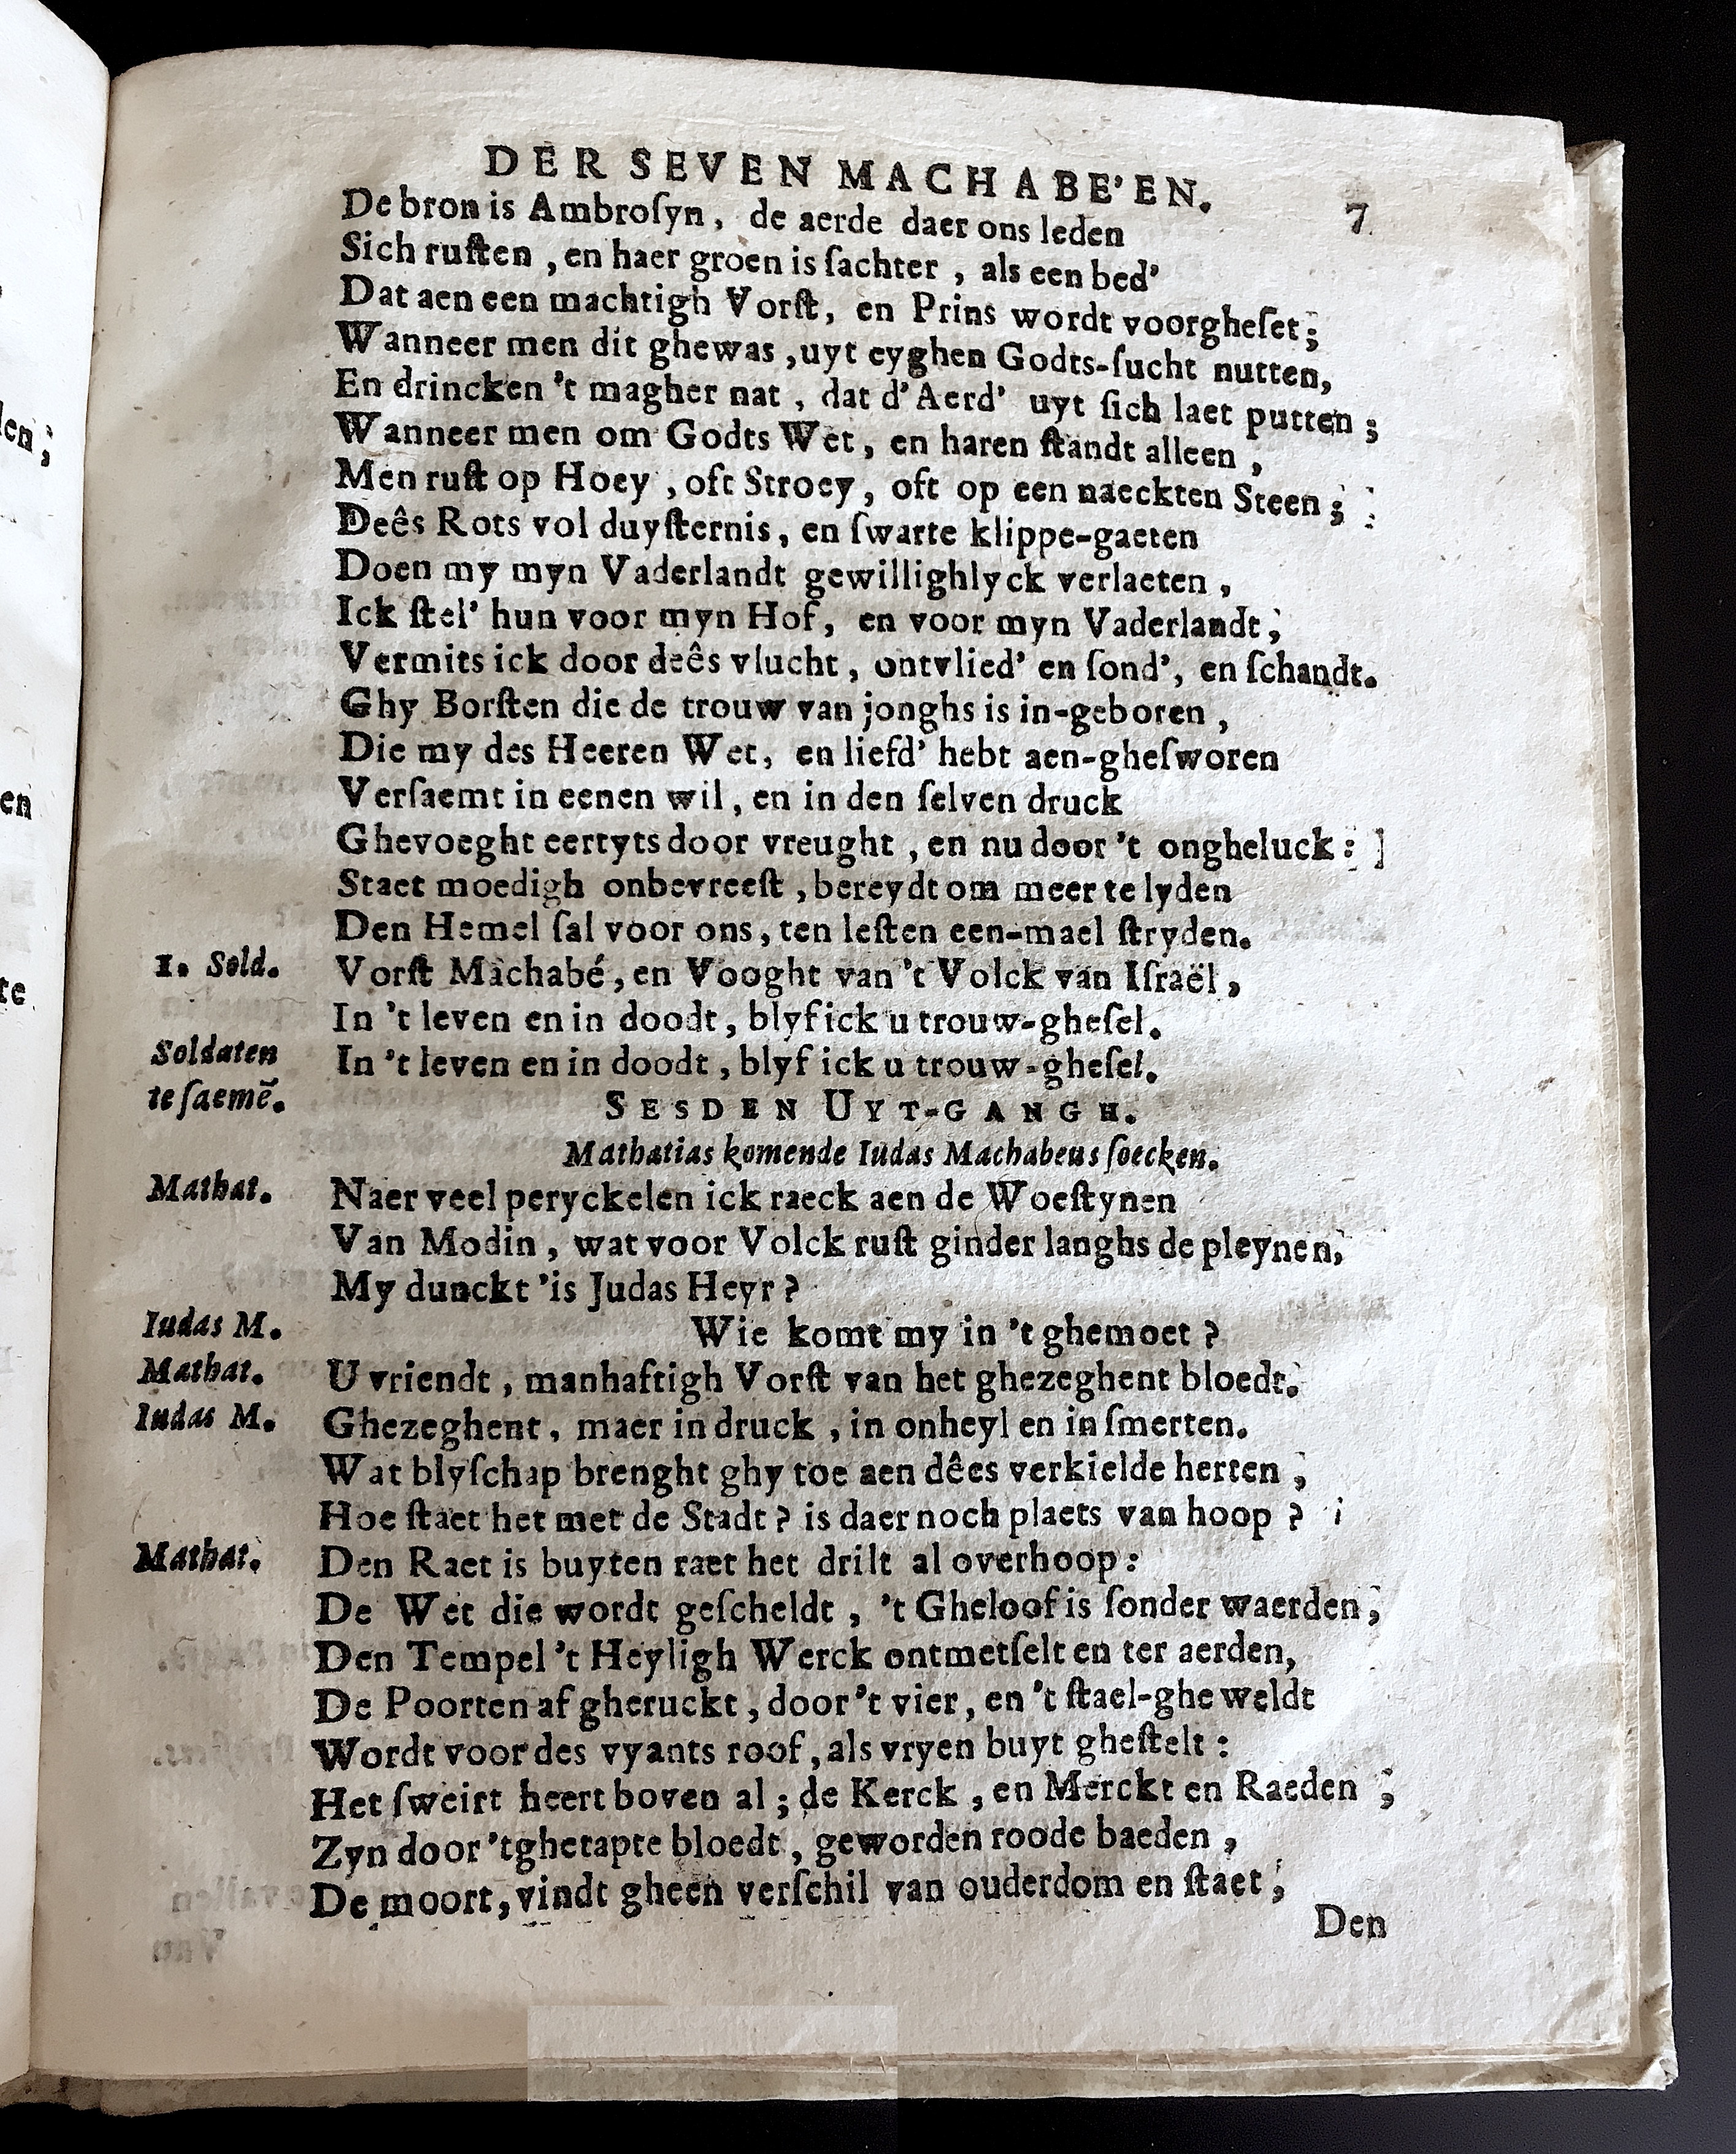 DER SEVEN MACHABE'EN. 7
De bron is Ambroſyn, de aerde daer ons leden
Sich ruſten, en haer groen is ſachter, als een bed'
Dat aen een machtigh Vorſt, en Prins wordt voorgheſet;
Wanneer men dit ghewas, uyt eyghen Godts-ſucht nutten,
En drincken 't magher nat, dat d'Aerd' uyt ſich laet putten;
Wanneer men om Godts Wet, en haren ſtandt alleen,
Men ruſt op Hoey, oft Stroey, oft op een naeckten Steen;
Deês Rots vol duyſternis, en ſwarte klippe-gaeten
Doen my myn Vaderlandt gewillighlyck verlaeten,
Ick ſtel' hun voor myn Hof, en voor myn Vaderlandt;
Vermits ick door deês vlucht, ontvlied' en ſond', en ſchandt.
Ghy Borſten die de trouw van jonghs is in-geboren,
Die my des Heeren Wet, en liefd' hebt aen-gheſworen
Verſaemt in eenen wil, en in den ſelven druck
Ghevoeght eertyts door vreught, en nu door 't ongheluck:
Staet moedigh onbevreeſt, bereydt om meer te lyden
Den Hemel ſal voor ons, ten leſten een-mael ſtryden.
1. Sold. Vorſt Machabé, en Vooght van 't Volck van Iſraël,
In 't leven en in doodt, blyf ick u trouw-gheſel.
Soldaten In 't leven en in doodt, blyf ick u trouw-gheſel.
te ſaemē.
SESDEN UYT-GANGH.
Mathatias komende Iudas Machabeus ſoecken.
Mathat. Naer veel peryckelen ick raeck aen de Woeſtynen
Van Modin, wat voor Volck ruſt ginder langhs de pleynen,
My dunckt 'is Judas Heyr?
Iudas M. Wie komt my in 't ghemoet?
Mathat. U vriendt, manhaftigh Vorſt van het ghezeghent bloedt.
Iudas M. Ghezeghent, maer in druck, in onheyl en in ſmerten.
Wat blyſchap brenght ghy toe aen dêes verkielde herten;
Hoe ſtaet het met de Stadt? is daer noch plaets van hoop?
Mathat. Den Raet is buyten raet het drilt al overhoop:
De Wet die wordt geſcheldt, 't Gheloof is ſonder waerden;
Den Tempel 't Heyligh Werck ontmetſelt en ter aerden,
De Poorten af gheruckt, door 't vier, en 't ſtael-gheweldt
Wordt voor des vyants roof, als vryen buyt gheſtelt:
Het ſweirt heert boven al; de Kerck, en Merckt en Raeden;
Zyn door 'tghetapte bloedt, geworden roode baeden,
De moort, vindt gheen verſchil van ouderdom en ſtaet;
Den